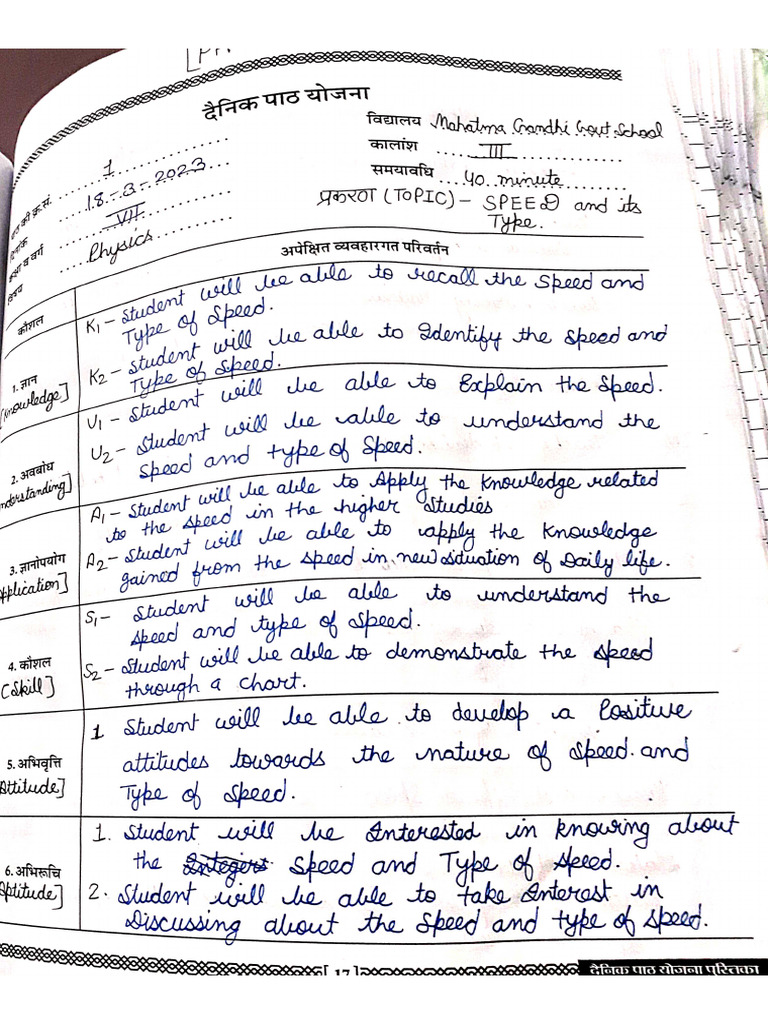 [PH
दैनिक पाठ योजना
विद्यालय Mahatma Gandhi Govt. School
पाठ की क्र.सं. 1
कालांश III
दिनांक 18-3-2023
समयावधि 40 minute
कक्षा व वर्ग VII
प्रकरण (TOPIC) - SPEED and its
Type.
विषय Physics
कौशल
अपेक्षित व्यवहारगत परिवर्तन
1. ज्ञान
[Knowledge]
K1 - Student will be able to recall the Speed and
Type of Speed.
K2 - Student will be able to Identify the Speed and
Type of Speed.
2. अवबोध
nderstanding]
U1 - Student will be able to Explain the Speed.
U2 - Student will be able to understand the
Speed and type of Speed.
3. ज्ञानोपयोग
Application]
A1 - Student will be able to Apply the Knowledge related
to the Speed in the higher Studies
A2 - Student will be able to apply the Knowledge
gained from the Speed in new Situation of Daily life.
4. कौशल
[Skill]
S1 - Student will be able to understand the
Speed and type of Speed.
S2 - Student will be able to demonstrate the speed
through a chart.
5. अभिवृत्ति
Attitude]
1 Student will be able to develop a Positive
attitudes towards the nature of Speed and
Type of Speed.
6. अभिरूचि
Aptitude]
1. Student will be Interested in knowing about
the Integers Speed and Type of Speed.
2. Student will be able to take Interest in
Discussing about the Speed and type of Speed.
[ 17 ]
दैनिक पाठ योजना पुस्तिका